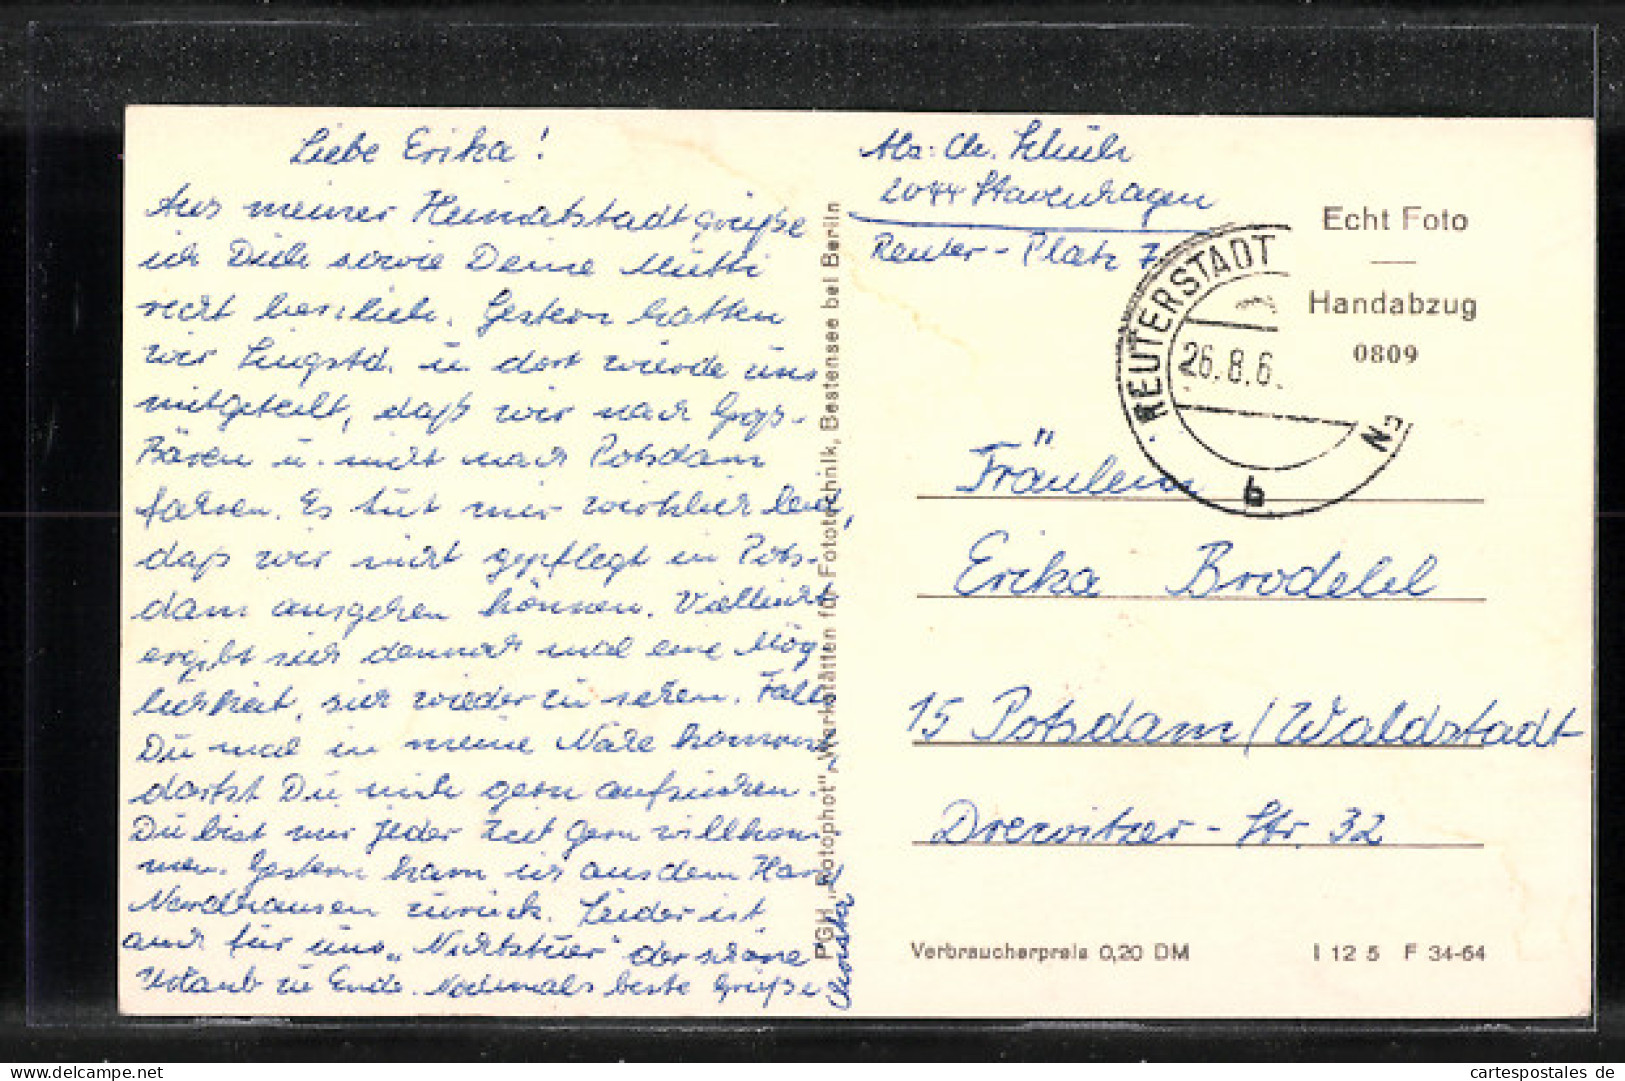 Liebe Erika!
Aus meiner Heimatstadt grüße
ich Dich sowie Deine Mutti
recht herzlich. Gestern hatten
wir u. dort wurde uns
mitgeteilt, daß wir nach Groß-
Bären u. nicht nach Potsdam
fahren. Es tut mir wirklich leid,
daß wir nicht gepflegt in Pots-
dam ausgehen können. Vielleicht
ergibt sich dennoch mal eine Mög-
lichkeit, sich wieder zu sehen. Falls
Du mal in meine Nähe kommst
darfst Du mich gern aufsuchen.
Du bist mir jeder Zeit gern willkom-
men. Gestern kam ich aus dem Harz
Nordhausen zurück. Leider ist
auch für uns „Nichtstuer" der schöne
Urlaub zu Ende. Nochmals beste Grüße
Christa
PGH „Fotophot", Werkstätten für Fototechnik, Bestensee bei Berlin
Abs: Ch. Schulz
2044 Stavenhagen
Reuter-Platz 7
REUTERSTADT
26.8.6
b
Echt Foto
Handabzug
0809
Fräulein
Erika
15 Potsdam/Waldstadt
Drewitzer-Str. 32
Verbraucherpreis 0,20 DM
I 12 5 F 34-64
www.oldthing.de
cartespostales de